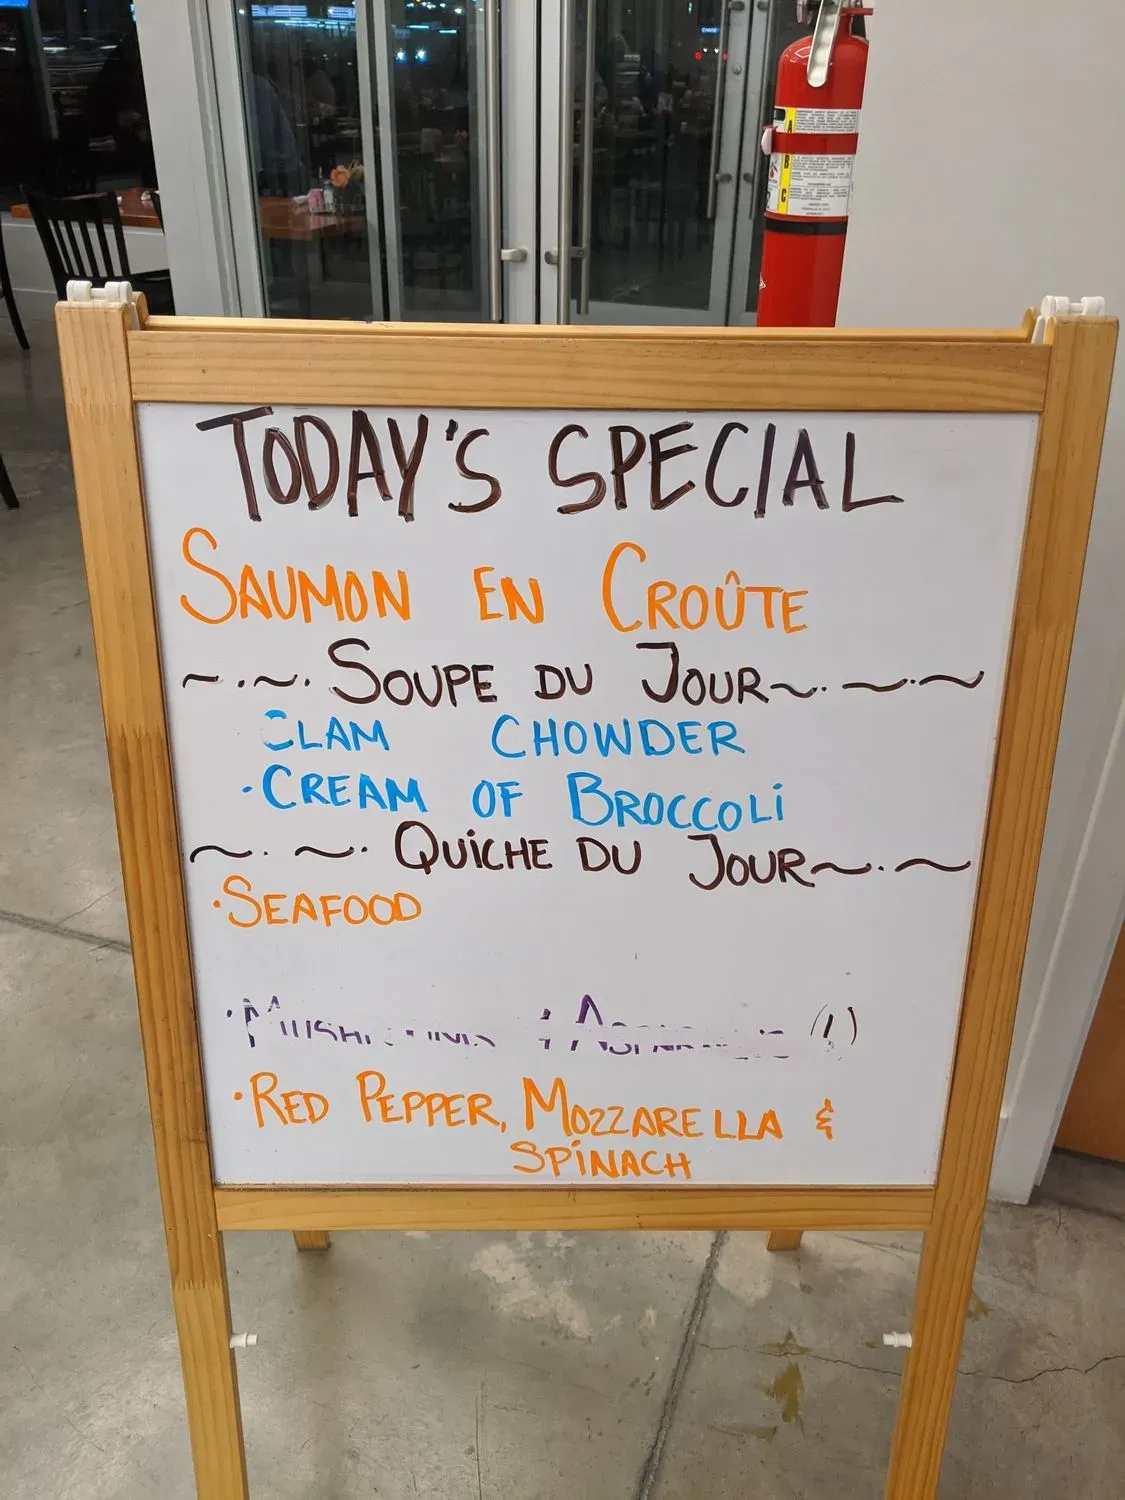 TODAY'S SPECIAL
SAUMON EN CROÛTE
~.~. SOUPE DU JOUR ~.~.~
CLAM CHOWDER
·CREAM OF BROCCOLi
~.~. QUiCHE DU JOUR ~.~
·SEAFOOD
·RED PEPPER, MOZZARELLA &
SPiNACH
A
B
C